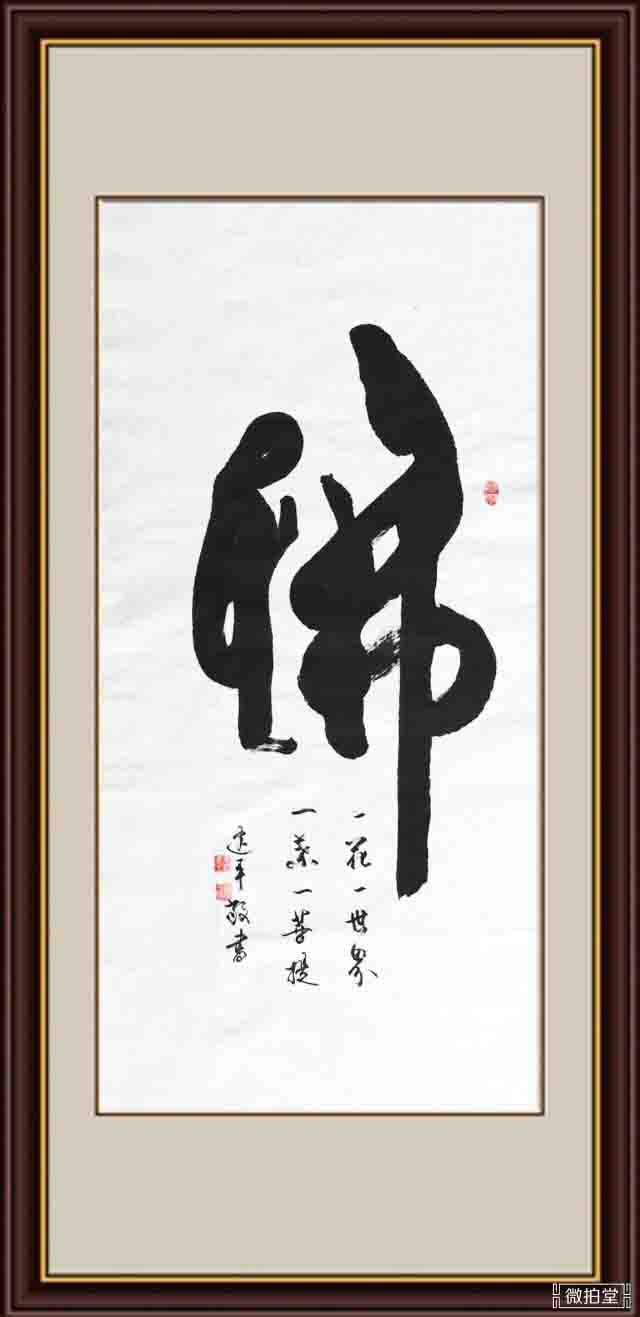 佛
一花一世界
一葉一菩提
建平敬書
微拍堂